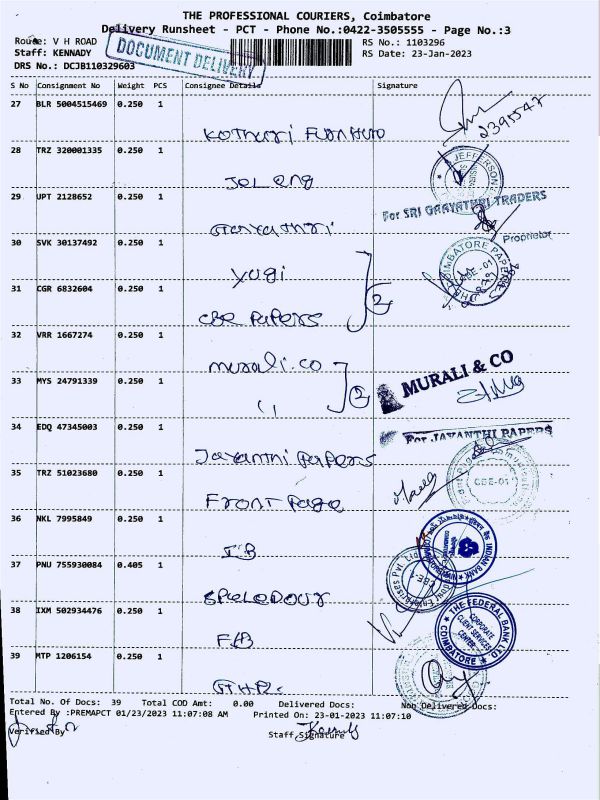 THE PROFESSIONAL COURIERS, Coimbatore
Delivery Runsheet - PCT - Phone No.:0422-3505555 - Page No.:3
Route: V H ROAD
RS No.: 1103296
Staff: KENNADY
RS Date: 23-Jan-2023
DRS No.: DCJB110329603
DOCUMENT DELIVERY
S No Consignment No Weight PCS Consignee Details Signature
27 BLR 5004515469 0.250 1
2395547
28 TRZ 320001335 0.250 1
JEFFERSON
29 UPT 2128652 0.250 1
For SRI GAAYATHRI TRADERS
Proprietor
30 SVK 30137492 0.250 1
yugi
COIMBATORE PAPERS
CBE-01
31 CGR 6832604 0.250 1
2
CBE PAPERS
32 VRR 1667274 0.250 1
murali.co
MURALI & CO
33 MYS 24791339 0.250 1
2
34 EDQ 47345003 0.250 1
For JAYANTHI PAPERS
Jayanthi PaPeRS
35 TRZ 51023680 0.250 1
CBE-01
Front Page
36 NKL 7995849 0.250 1
INDIAN BANK
I.B
37 PNU 755930084 0.405 1
Enterprises Pvt. Ltd
CBE-1
38 IXM 502934476 0.250 1
THE FEDERAL BANK LTD
CORPORATE
CLIENT SERVICES
CENTER
COIMBATORE
39 MTP 1206154 0.250 1
Total No. Of Docs: 39 Total COD Amt: 0.00 Delivered Docs: Non Delivered Docs:
Entered By :PREMAPCT 01/23/2023 11:07:08 AM Printed On: 23-01-2023 11:07:10
Verified By
Staff Signature